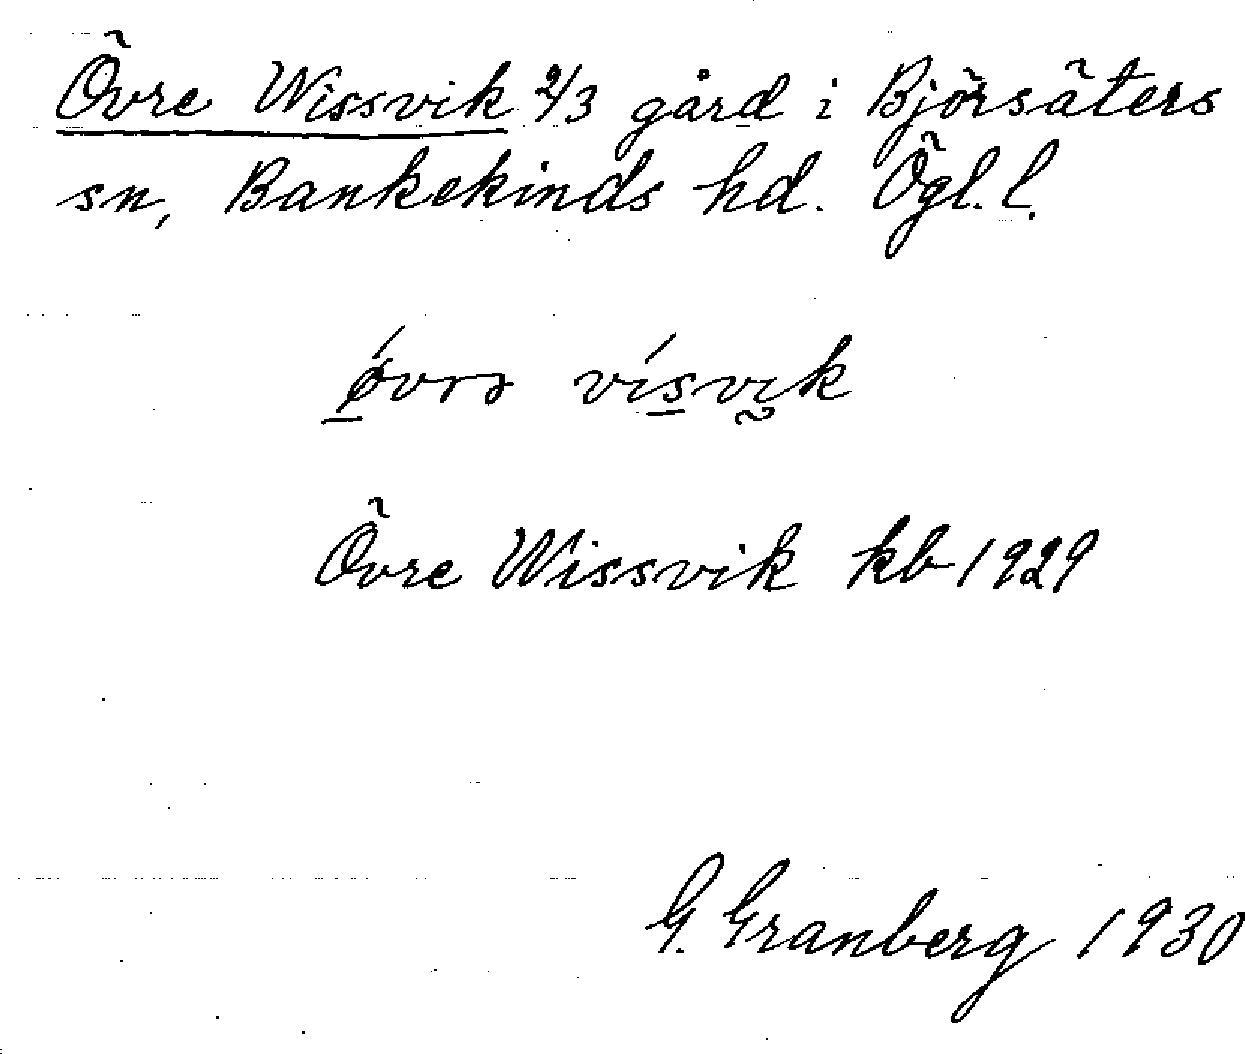 Övre Wissvik 2/3 gård i Björsäters
sn, Bankekinds hd. Ögl. l.
ǿvrə vísvik
Övre Wissvik kb 1929
G. Granberg 1930